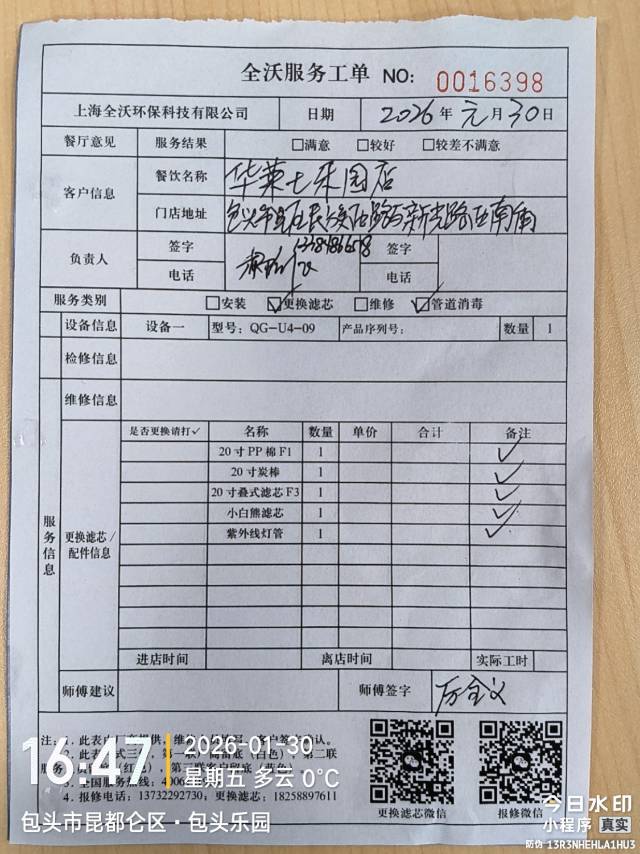 全沃服务工单 NO: 0016398
上海全沃环保科技有限公司 日期 2026年元月30日
餐厅意见 服务结果 □满意 □较好 □较差不满意
客户信息 餐饮名称 华莱士乐园店
门店地址
负责人 签字 签字
电话 电话
服务类别 □安装 ☑更换滤芯 □维修 ☑管道消毒
设备信息 设备一 型号: QG-U4-09 产品序列号: 数量 1
检修信息
维修信息
服务信息
更换滤芯/配件信息
是否更换请打✓ 名称 数量 单价 合计 备注
20寸PP棉F1 1 ✓
20寸炭棒 1 ✓
20寸叠式滤芯F3 1 ✓
小白熊滤芯 1 ✓
紫外线灯管 1 ✓
进店时间 离店时间 实际工时
师傅建议 师傅签字
4. 报修电话: 13732292730; 更换滤芯: 18258897611
更换滤芯微信 报修微信
16:47 2026-01-30
星期五 多云 0℃
包头市昆都仑区·包头乐园
今日水印
小程序 真实
防伪 13R3NHEHLA1HU3